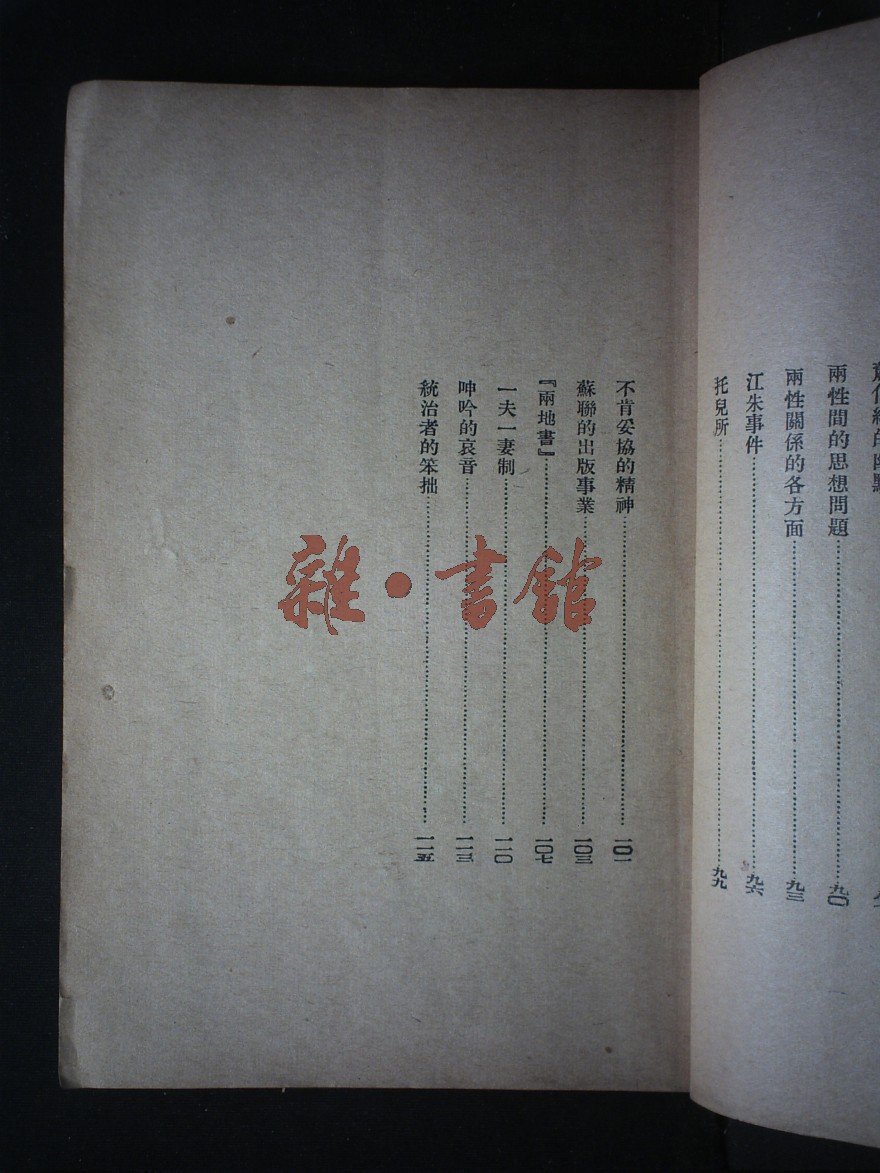 兩性間的思想問題 九〇
兩性關係的各方面 九三
江朱事件 九六
托兒所 九九
不肯妥協的精神 一〇一
蘇聯的出版事業 一〇三
『兩地書』 一〇七
一夫一妻制 一一〇
呻吟的哀音 一一三
統治者的笨拙 一一五
雜·書館